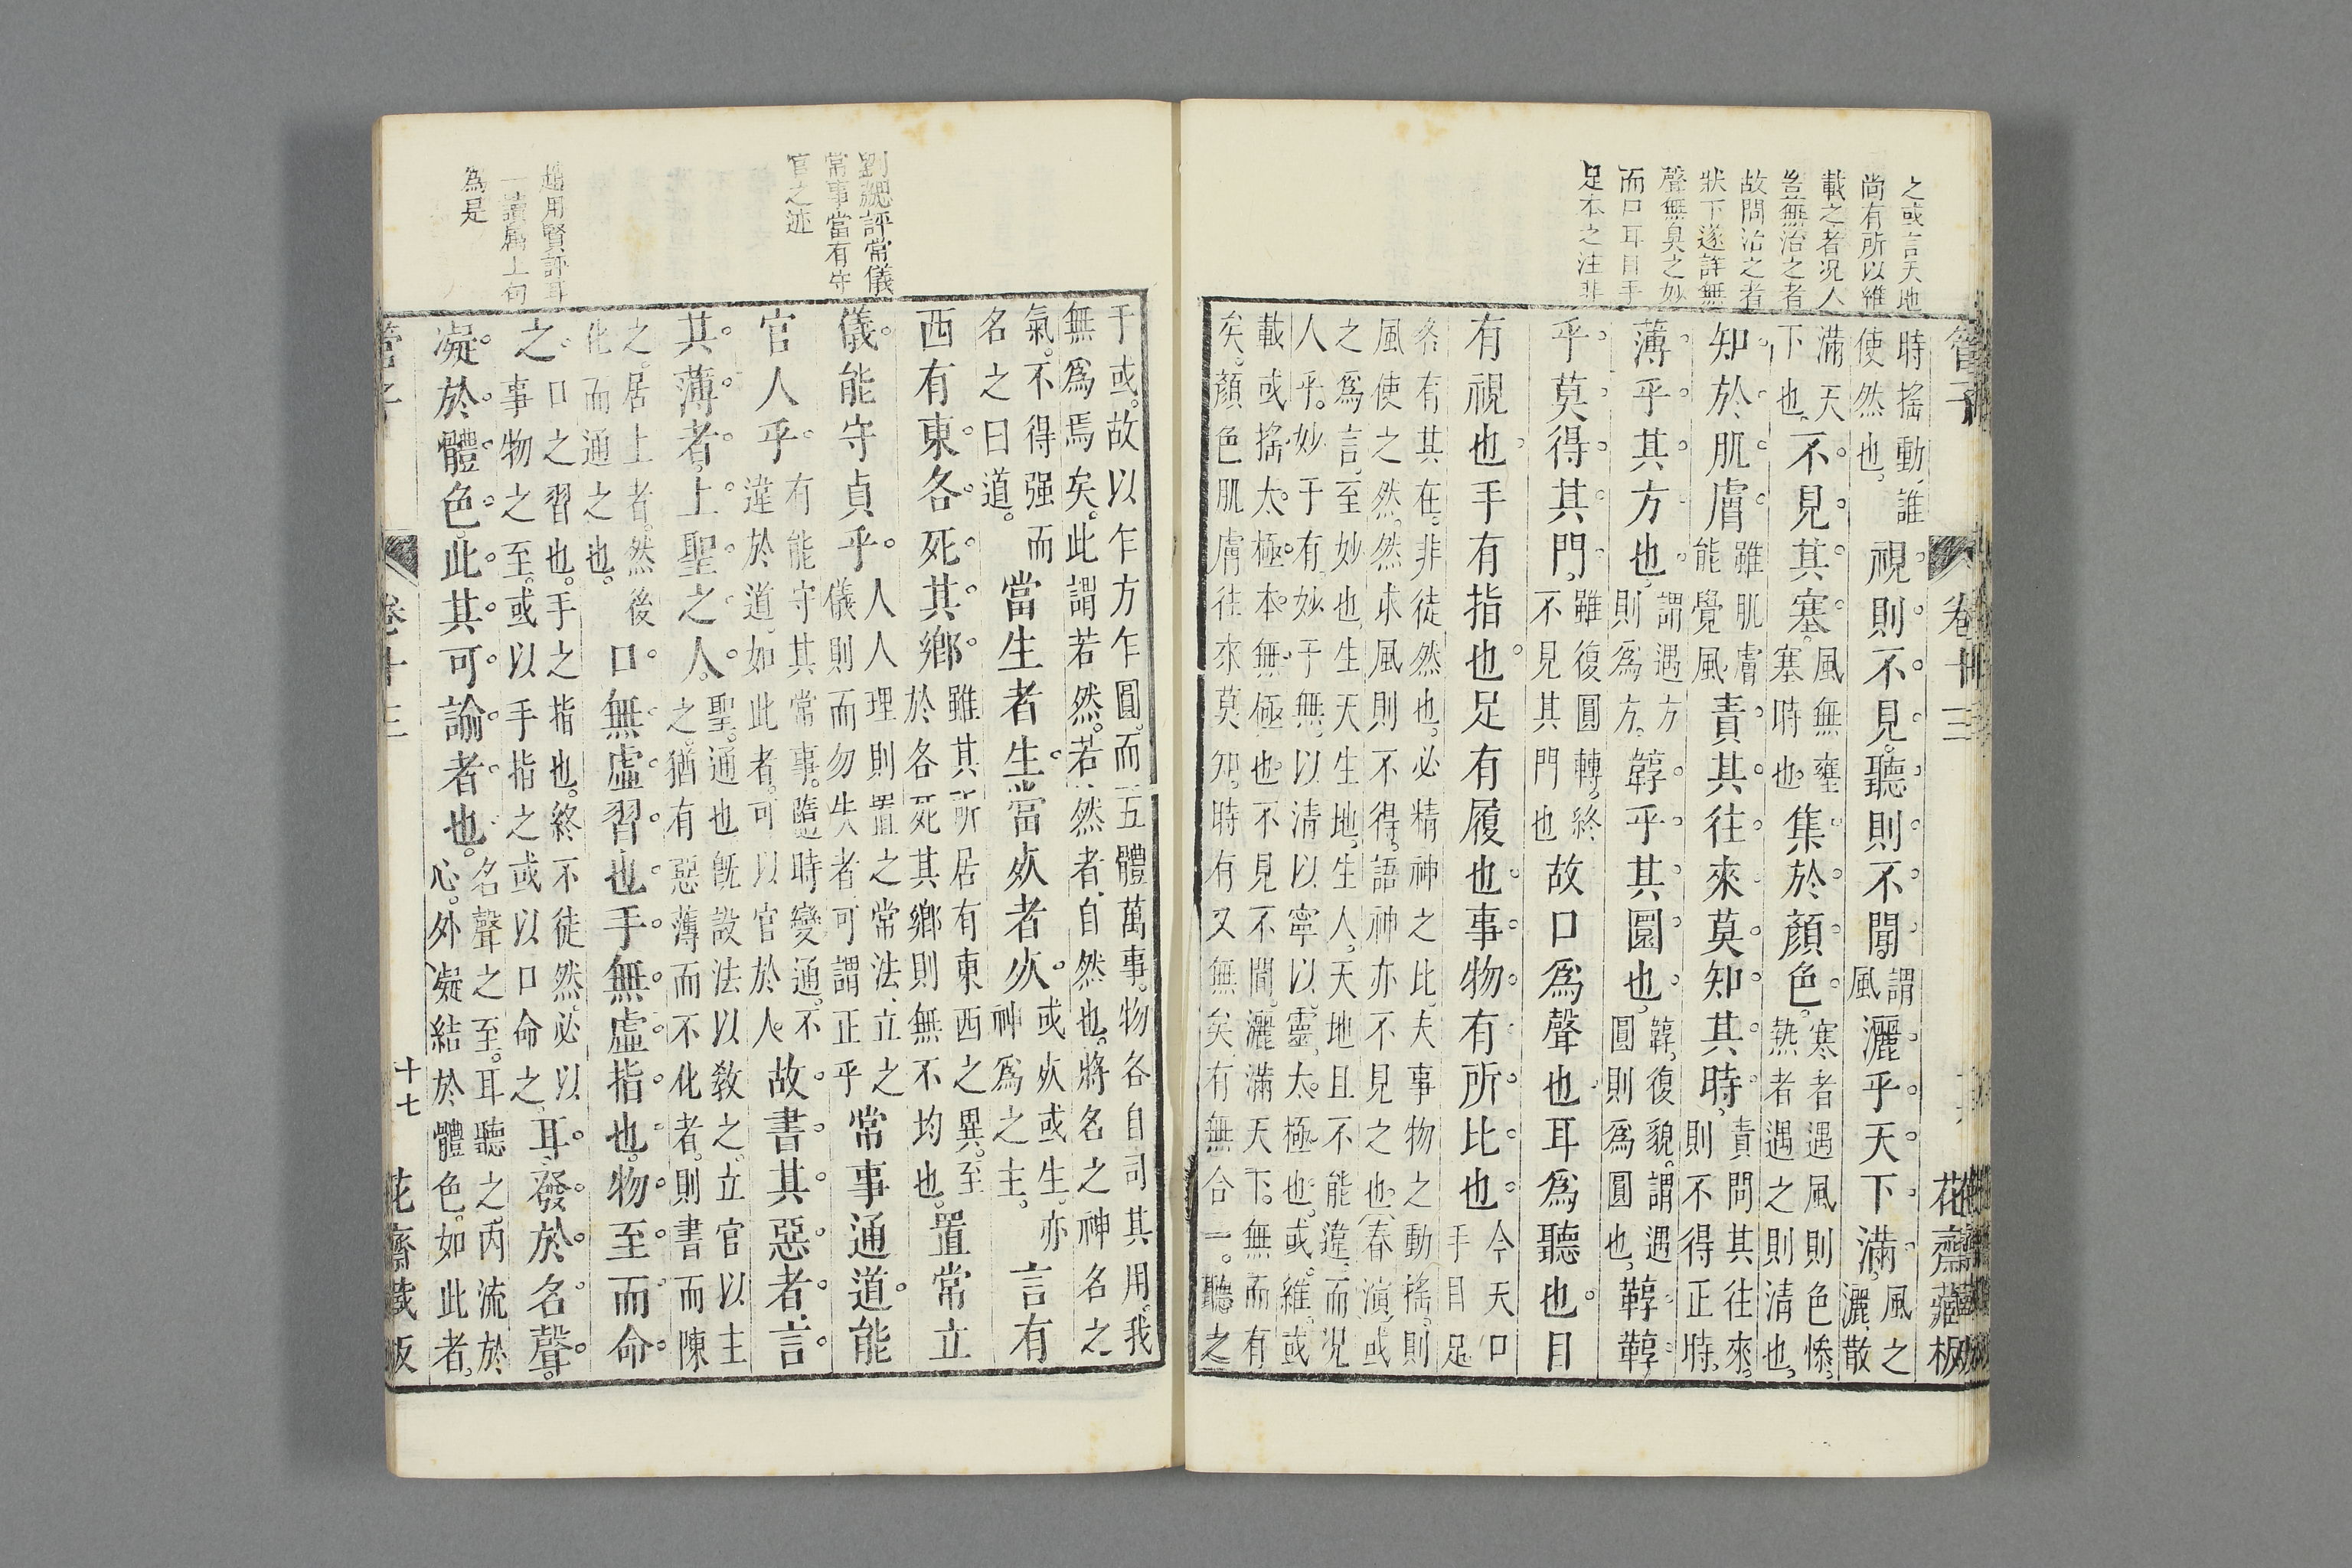 之或言天地
尚有所以維
載之者况人
豈無治之者
故問治之者
狀下遂詳無
聲無臭之妙
而口耳目手
足本之注非
管子
卷十三
花齋藏板
時搖動誰
使然也視則不見聽則不聞謂
風灑乎天下滿風之
灑散
滿天
下也不見其塞風無壅
塞時也集於顏色寒者遇風則色慘
熱者遇之則清也
知於肌膚雖肌膚
能覺風責其往來莫知其時責問其往來
則不得正時
薄乎其方也謂遇方
則爲方韕乎其圜也韕復貌謂遇
圓則爲圓也韕韕
乎莫得其門雖復圓轉終
不見其門也故口爲聲也耳爲聽也目
有視也手有指也足有履也事物有所比也今天口
手目足
各有其在非徒然也必精神之比夫事物之動搖則
風使之然然求風則不得語神亦不見之也(春演)或
之爲言至妙也生天生地生人天地且不能違而况
人乎妙于有妙于無以清以寧以靈太極也或維或
載或搖太極本無極也不見不聞灑滿天下無而有
矣顏色肌膚往來莫知時有又無矣有無合一聽之
于或故以乍方乍圓而五體萬事物各自司其用我
無爲焉矣此謂若然若然者自然也將名之神名之
氣不得强而
名之曰道當生者生當死者死或死或生亦
神爲之主言有
西有東各死其鄉雖其所居有東西之異至
於各死其鄉則無不均也置常立
儀能守貞乎人人理則置之常法立之
儀則而勿失者可謂正乎常事通道能
官人乎有能守其常事隨時變通不
違於道如此者可以官於人故書其惡者言
其薄者上聖之人聖通也既設法以敎之立官以主
之猶有惡薄而不化者則書而陳
之居上者然後
化而通之也口無虛習也手無虛指也物至而命
之口之習也手之指也終不徒然必以
事物之至或以手指之或以口命之耳發於名聲
凝於體色此其可諭者也名聲之至耳聽之內流於
心外凝結於體色如此者
劉勰評常儀
常事當有守
官之迹
趙用賢評耳
一讀屬上句
為是
管子
卷十三
十七
花齋藏板